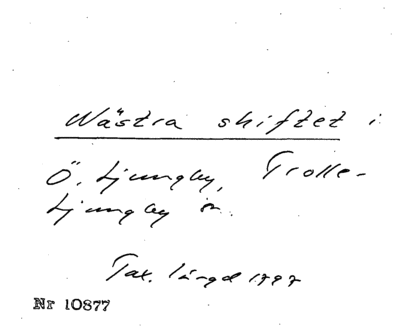 Wästra skiftet i
Ö. Ljungby, Trolle-
Ljungby sn.
Tax. längd 1797
Nr 10877